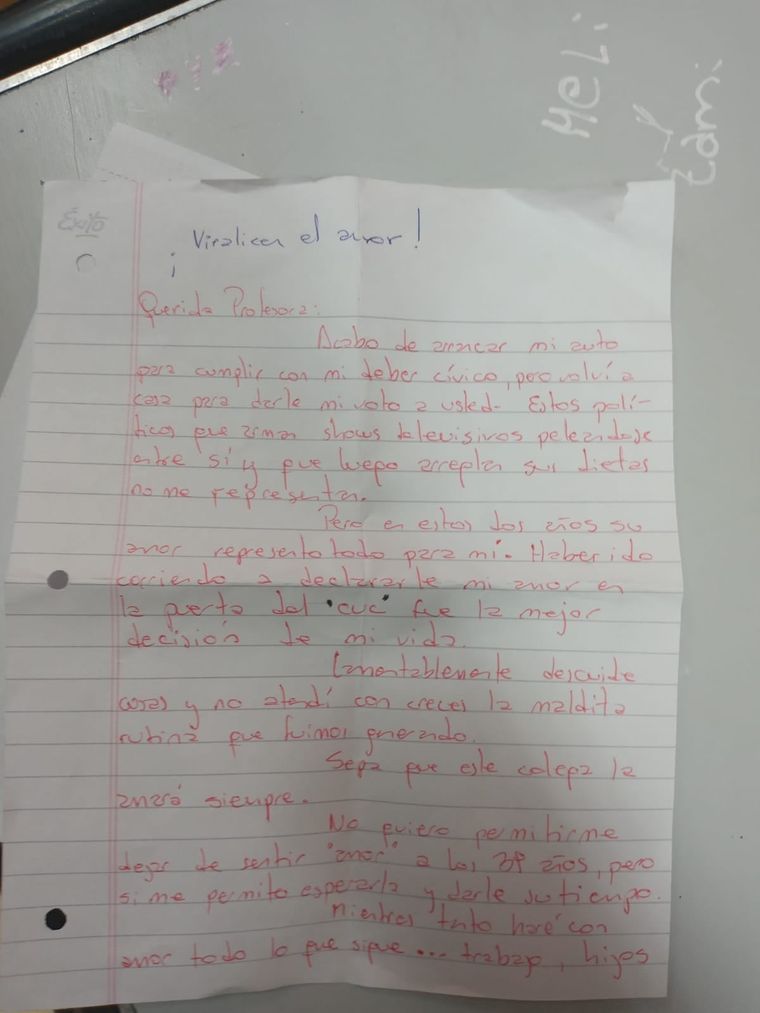 MeLi
y
Edmi
Éxito
¡Viralicen el amor!
Querida Profesora:
Acabo de arrancar mi auto
para cumplir con mi deber cívico, pero volví a
casa para darle mi voto a usted. Estos polí-
ticos que arman shows televisivos peleandose
entre sí y que luego arreglan sus dietas
no me representan.
Pero en estos dos años su
amor representó todo para mí. Haber ido
corriendo a declararle mi amor en
la puerta del "CUC" fue la mejor
decisión de mi vida.
Lamentablemente descuide
cosas y no atendí con creces la maldita
rutina que fuimos generando.
Sepa que este colega la
amará siempre.
No quiero permitirme
dejar de sentir "amor" a los 39 años, pero
si me permito esperarla y darle su tiempo.
Mientras tanto haré con
amor todo lo que sigue... trabajo, hijos